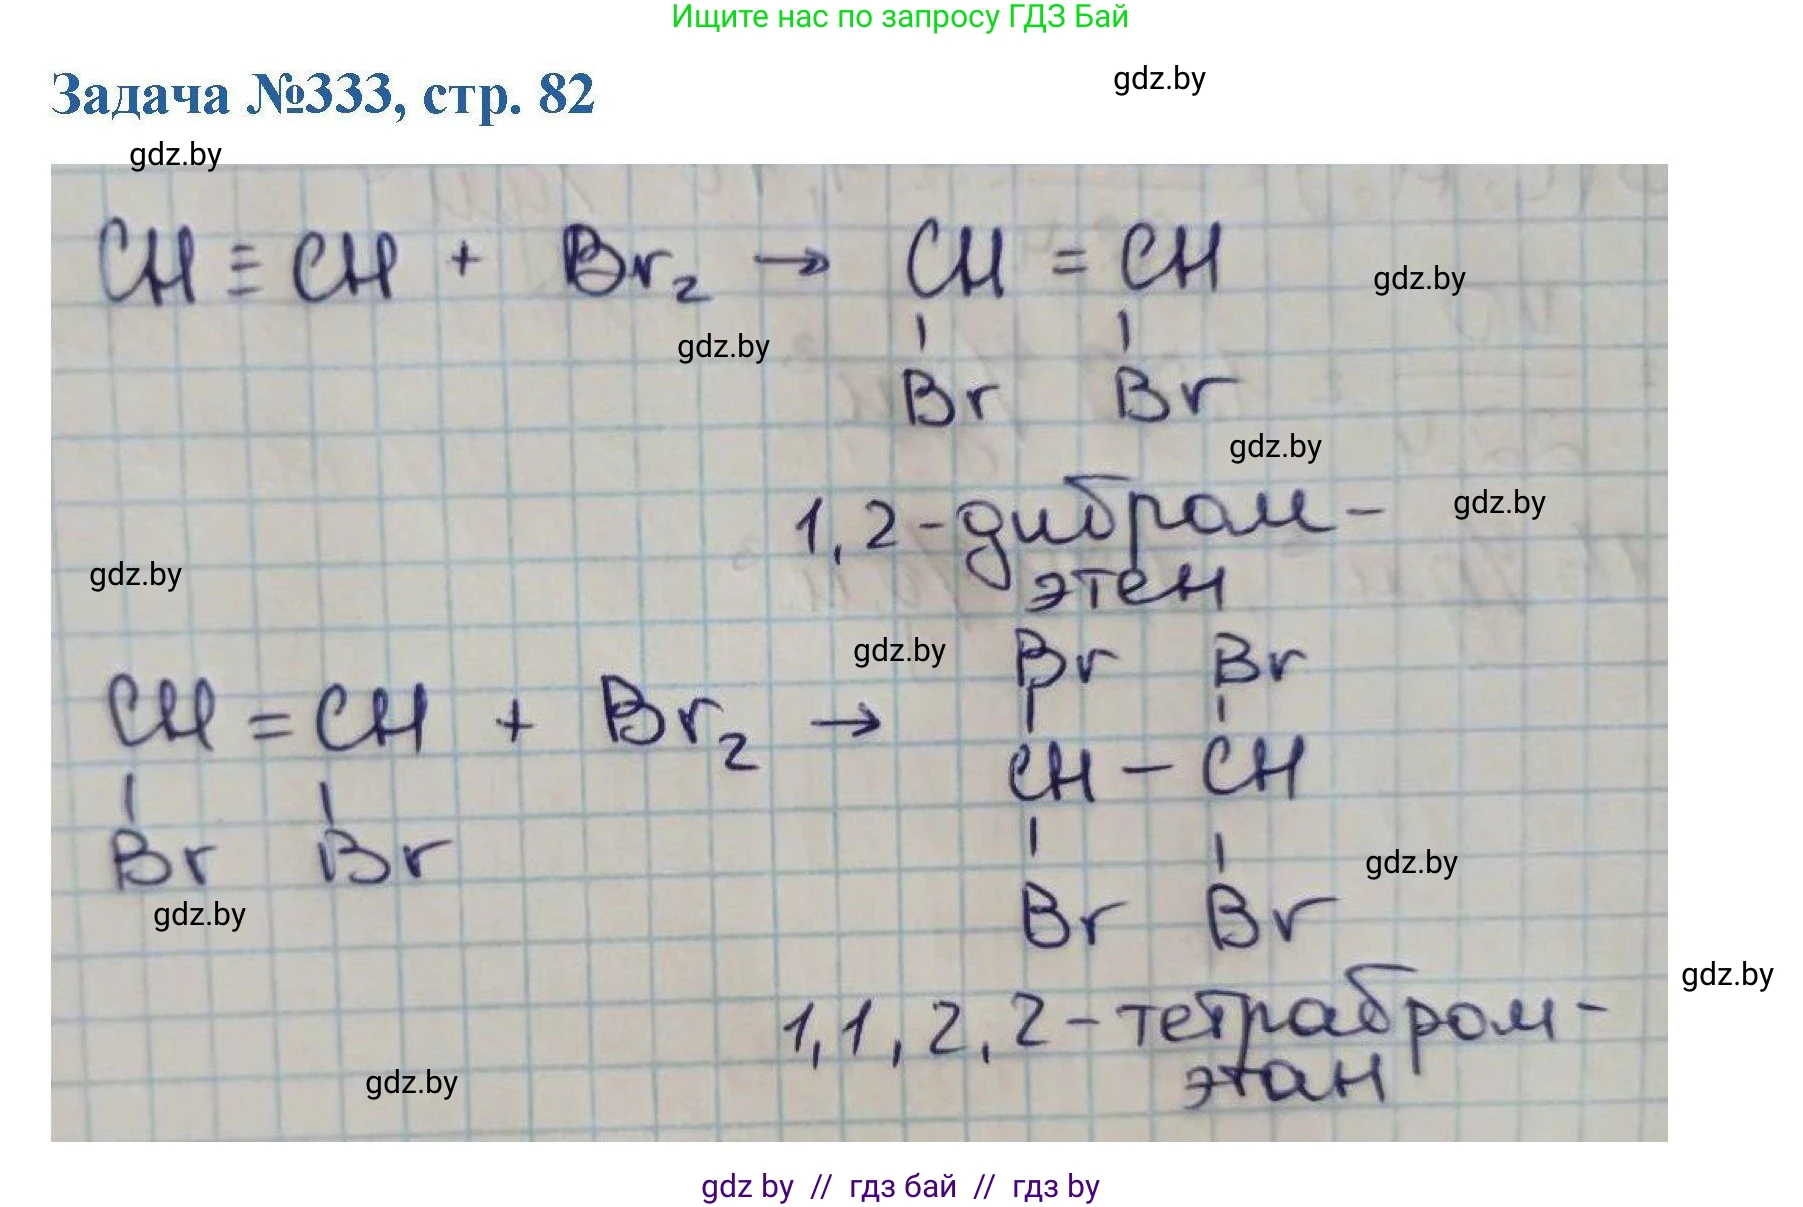 Ищите нас по запросу ГДЗ Бай
Задача №333, стр. 82
gdz.by
gdz.by
CH ≡ CH + Br₂ → CH = CH
gdz.by
gdz.by
Br Br
gdz.by
1,2-дибром-
gdz.by
gdz.by
этен
gdz.by
Br Br
CH = CH + Br₂ →
CH - CH
Br Br
gdz.by
gdz.by
Br Br
gdz.by
1,1,2,2-тетрабром-
этан
gdz.by
gdz by // гдз бай // гдз by